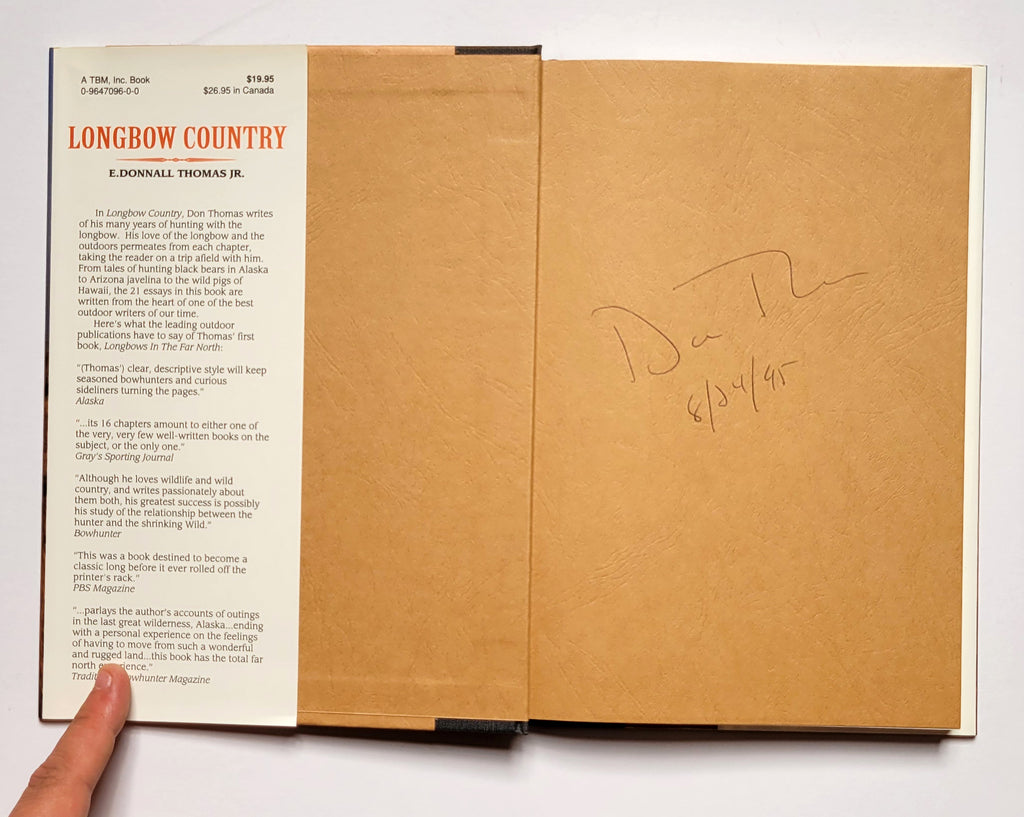 A TBM, Inc. Book $19.95
0-9647096-0-0 $26.95 in Canada
LONGBOW COUNTRY
E.DONNALL THOMAS JR.
In Longbow Country, Don Thomas writes
of his many years of hunting with the
longbow. His love of the longbow and the
outdoors permeates from each chapter,
taking the reader on a trip afield with him.
From tales of hunting black bears in Alaska
to Arizona javelina to the wild pigs of
Hawaii, the 21 essays in this book are
written from the heart of one of the best
outdoor writers of our time.
Here's what the leading outdoor
publications have to say of Thomas' first
book, Longbows In The Far North:
"(Thomas') clear, descriptive style will keep
seasoned bowhunters and curious
sideliners turning the pages."
Alaska
"...its 16 chapters amount to either one of
the very, very few well-written books on the
subject, or the only one."
Gray's Sporting Journal
"Although he loves wildlife and wild
country, and writes passionately about
them both, his greatest success is possibly
his study of the relationship between the
hunter and the shrinking Wild."
Bowhunter
"This was a book destined to become a
classic long before it ever rolled off the
printer's rack."
PBS Magazine
"...parlays the author's accounts of outings
in the last great wilderness, Alaska...ending
with a personal experience on the feelings
of having to move from such a wonderful
and rugged land...this book has the total far
north
Magazine
Don
8/24/95